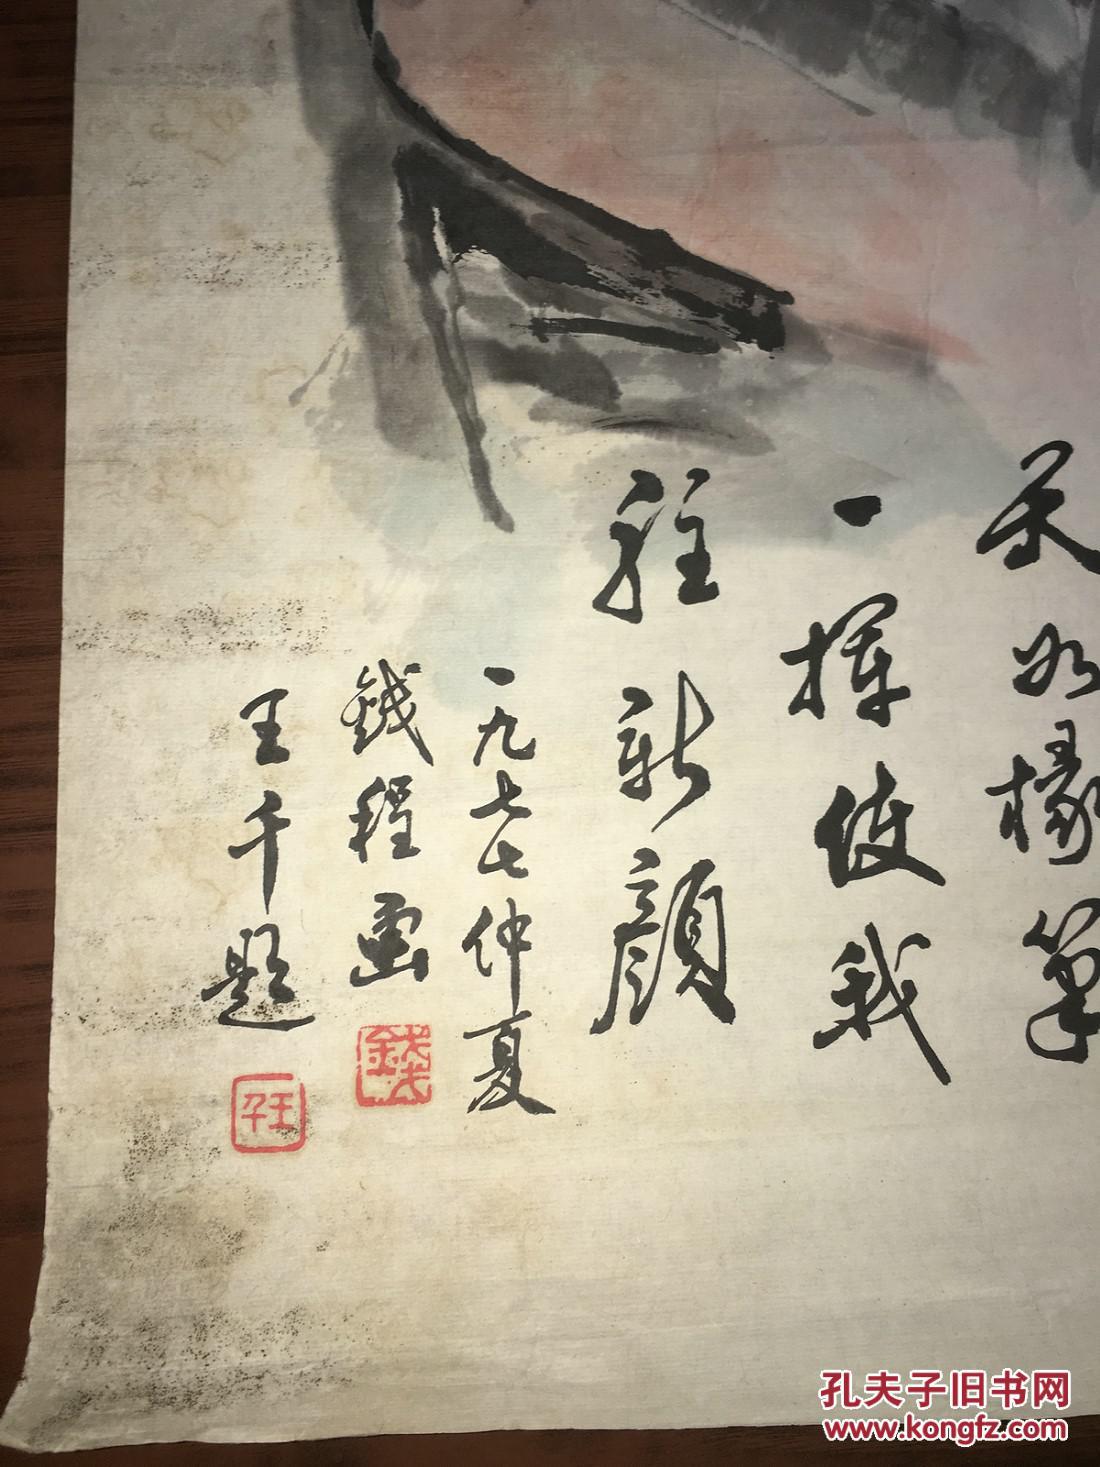 如椽筆
一揮使我
駐新顔
一九七七仲夏
錢程畫
錢
王千題
王千
孔夫子旧书网
www.kongfz.com